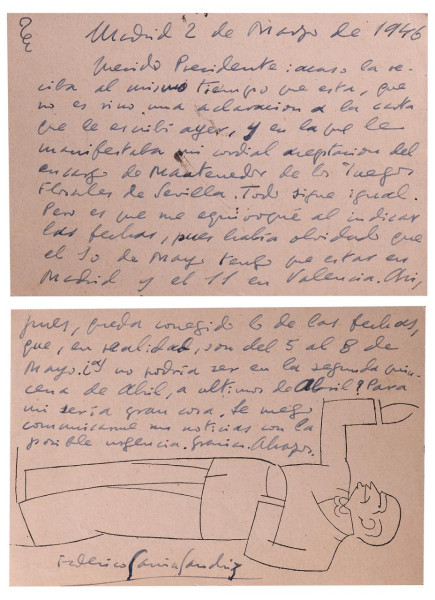 Madrid 2 de Marzo de 1946
Querido Presidente: acaso la re-
ciba al mismo tiempo que esta, que
no es sino una aclaración a la carta
que le escribí ayer, y en la que le
manifestaba mi cordial aceptación del
encargo de Mantenedor de los Juegos
Florales de Sevilla. Todo sigue igual.
Pero es que me equivoqué al indicar
las fechas, pues había olvidado que
el 10 de Mayo tengo que estar en
Madrid y el 11 en Valencia. Así,
pues, queda corregido lo de las fechas,
que, en realidad, son del 5 al 8 de
Mayo. ¿Y no podría ser en la segunda quin-
cena de Abril, a últimos de Abril? Para
mí sería gran cosa. Le ruego
comunicarme sus noticias con la
posible urgencia. Gracias. Abrazos.
Federico García Sanchiz